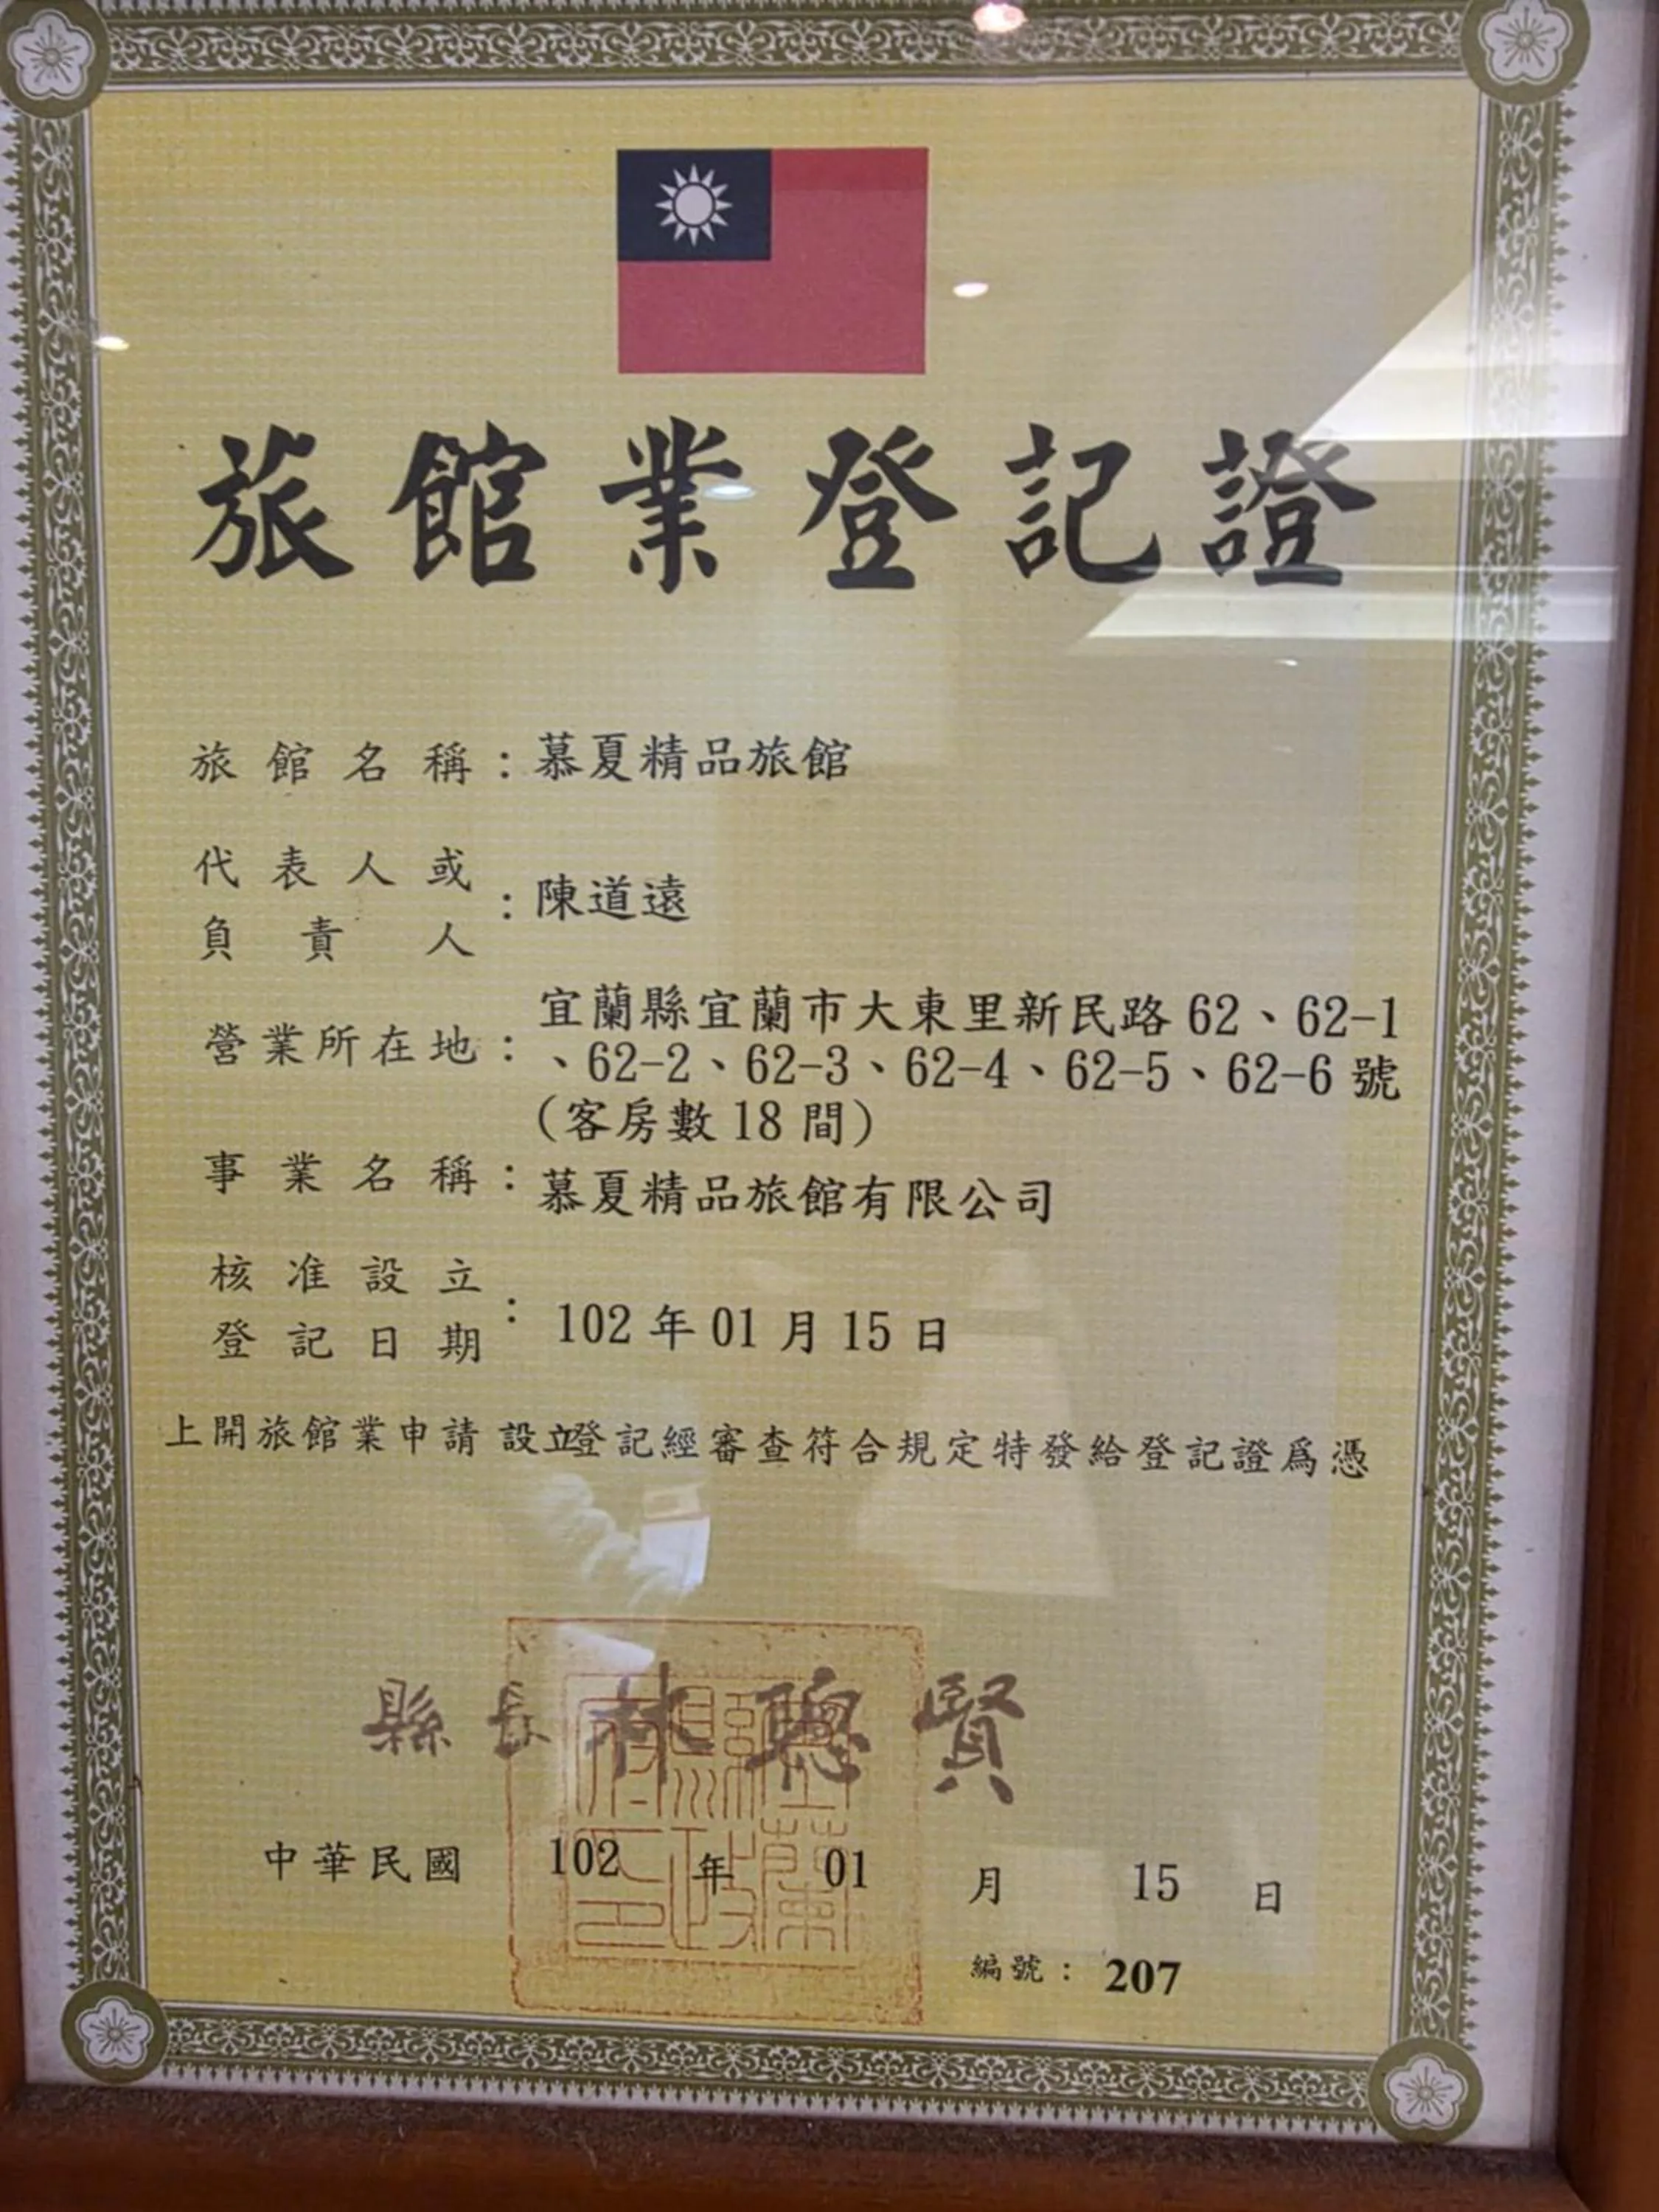 旅館業登記證
旅館名稱：慕夏精品旅館
代表人或
負責人：陳道遠
營業所在地：宜蘭縣宜蘭市大東里新民路62、62-1
、62-2、62-3、62-4、62-5、62-6號
(客房數18間)
事業名稱：慕夏精品旅館有限公司
核准設立
登記日期：102年01月15日
上開旅館業申請設立登記經審查符合規定特發給登記證爲憑
縣長林聰賢
宜蘭縣政府印
中華民國 102 年 01 月 15 日
編號：207